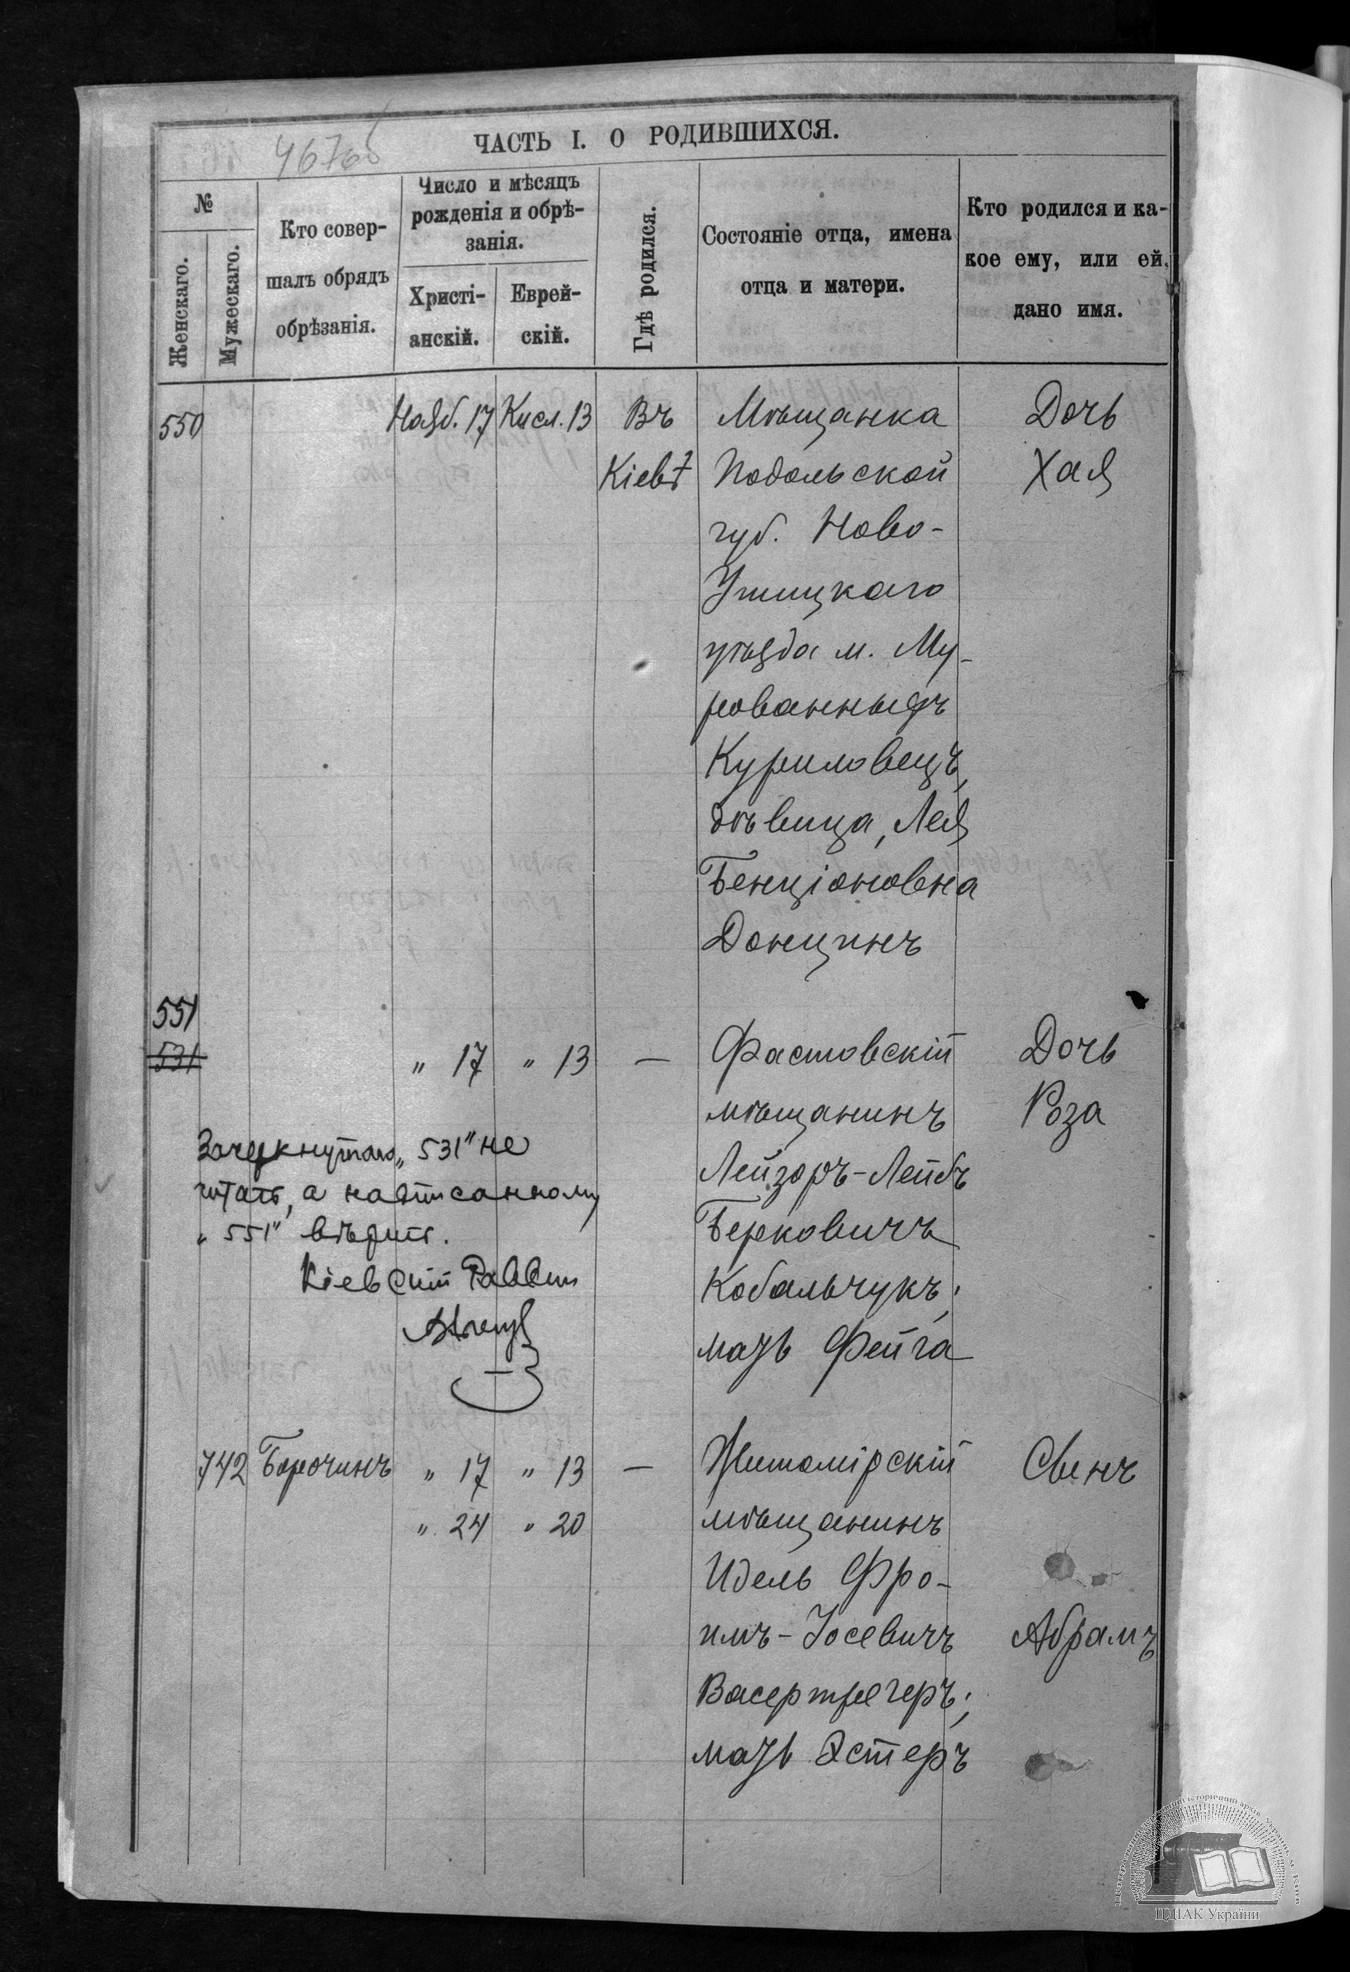 467об
ЧАСТЬ I. О РОДИВШИХСЯ.
№
Женскаго.
Мужескаго.
Кто совер-
шалъ обрядъ
обрѣзанія.
Число и мѣсяцъ
рожденія и обрѣ-
занія.
Христі-
анскій.
Еврей-
скій.
Гдѣ родился.
Состояніе отца, имена
отца и матери.
Кто родился и ка-
кое ему, или ей,
дано имя.
550 Нояб. 17 Кисл. 13 Въ Мѣщанка Дочь
Кіевѣ Подольской Хая
губ. Ново-
Ушицкаго
уѣзда м. Му-
рованныхъ
Куриловецъ,
дѣвица, Лея
Бенціоновна
Донцинъ
551
531 " 17 " 13 — Фастовскій Дочь
мѣщанинъ Роза
Лейзоръ-Лейбъ
Берковичъ
Ковальчукъ;
мать Фейга
Зачеркнутаго „531" не
читать, а надписанному
„551" вѣрить.
Кіевскій Раввин
742 Борочинъ " 17 " 13 — Житомірскій Сынъ
" 24 " 20 мѣщанинъ
Идель Фро-
имъ-Іосевичъ Абрамъ
Васертрегеръ;
мать Эстеръ
ЦДІАК України